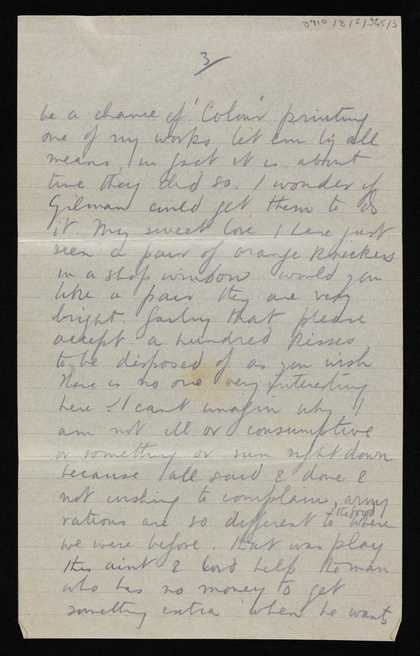 8910/8/2/365/3
3
be a chance of 'Colour' printing
one of my works let em by all
means, in fact it is about
time they did so. I wonder if
Gilman could get them to do
it My sweet love I have just
seen a pair of orange knickers
in a shop window would you
like a pair they are very
bright failing that please
accept a hundred kisses
to be disposed of as you wish
There is no one very interesting
here & I cant imagin why I
am not ill or consumptive
or something or run right down
because all said & done &
not wishing to complain, army
rations are so different to where
& the food
we were before. That was play
this aint & God help the man
who has no money to get
something extra when he wants